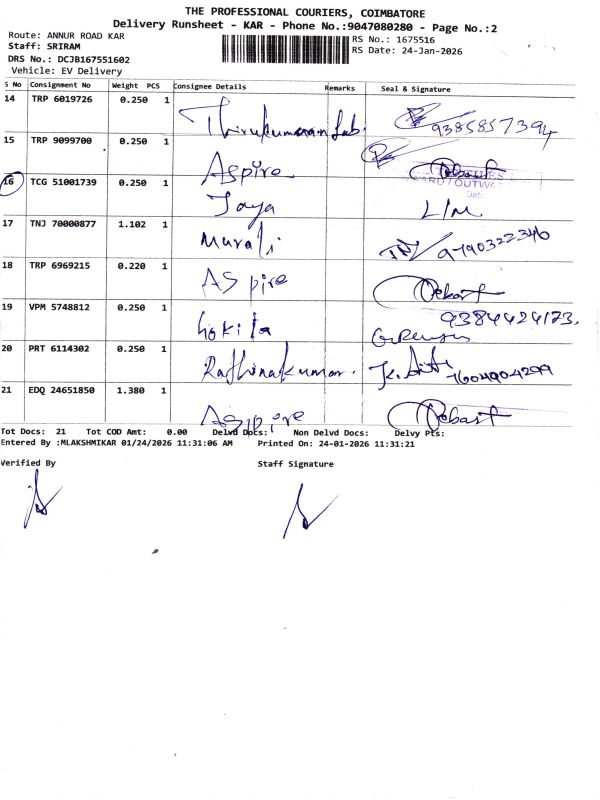 THE PROFESSIONAL COURIERS, COIMBATORE
Delivery Runsheet - KAR - Phone No.:9047080280 - Page No.:2
Route: ANNUR ROAD KAR
RS No.: 1675516
Staff: SRIRAM
RS Date: 24-Jan-2026
DRS No.: DCJB167551602
Vehicle: EV Delivery
S No Consignment No Weight PCS Consignee Details Remarks Seal & Signature
14 TRP 6019726 0.250 1 Thirukumaran Lab 9385857394
15 TRP 9099700 0.250 1 Aspire
16 TCG 51001739 0.250 1 Jaya L/M
17 TNJ 70000877 1.102 1 Murali 9790322346
18 TRP 6969215 0.220 1 ASpire
19 VPM 5748812 0.250 1 Gokila 9384424173.
20 PRT 6114302 0.250 1 Rathinakumar. 7604904299
21 EDQ 24651850 1.380 1 Aspire
Tot Docs: 21 Tot COD Amt: 0.00 Delvd Docs: Non Delvd Docs: Delvy Pts:
Entered By :MLAKSHMIKAR 01/24/2026 11:31:06 AM Printed On: 24-01-2026 11:31:21
Verified By Staff Signature